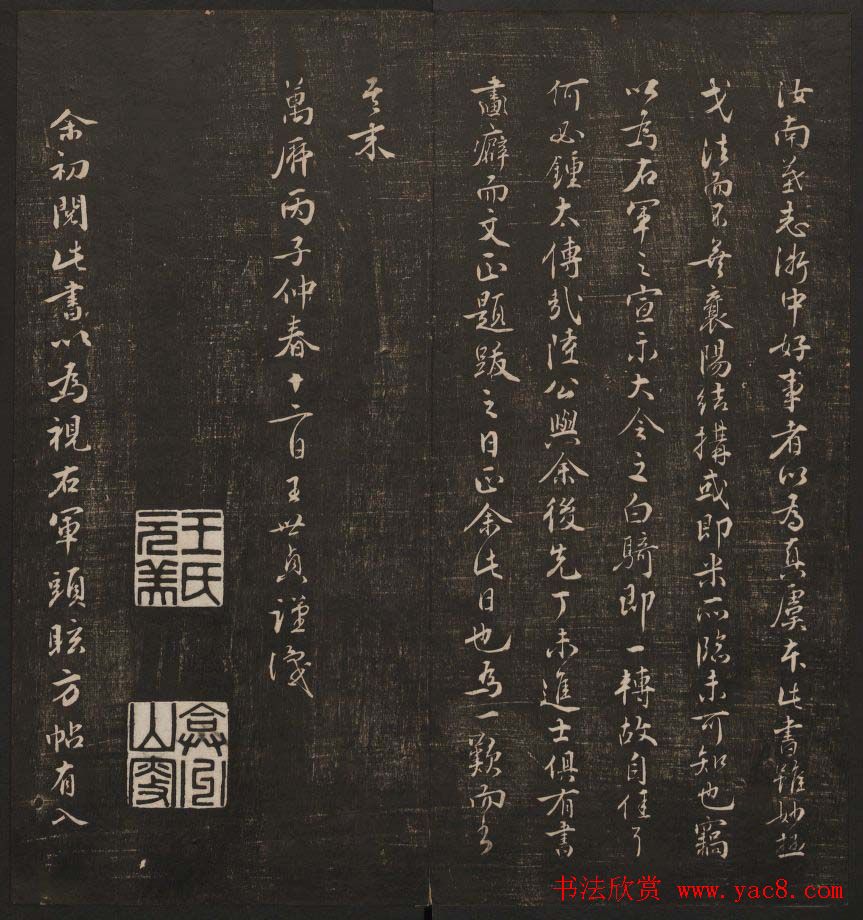 汝南志浙中好事者以為真虞本此書雖妙極
戈法而不無襄陽結搆或即米所臨未可知也竊
以為右軍之宣示大令之白騎即一轉故自佳了
何必鍾太傅哉陸公與余後先丁未進士俱有書
畫癖而文正題跋之日正余此日也為一歎而書
其末
萬曆丙子仲春十二日王世貞謹識
王氏元美
余初閱此書以為視右軍頭眩方帖有入
书法欣赏 www.yac8.com